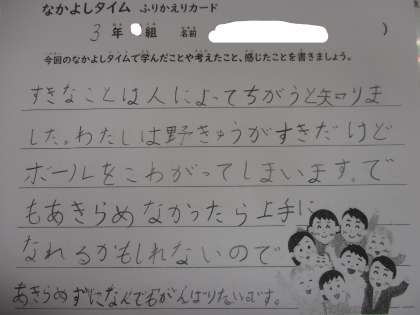 なかよしタイム ふりかえりカード
3年 組 名前 )
今回のなかよしタイムで学んだことや考えたこと、感じたことを書きましょう。
すきなことは人によってちがうと知りま
した。わたしは野きゅうがすきだけど
ボールをこわがってしまいます。で
もあきらめなかったら上手に
なれるかもしれないので
あきらめずになんで